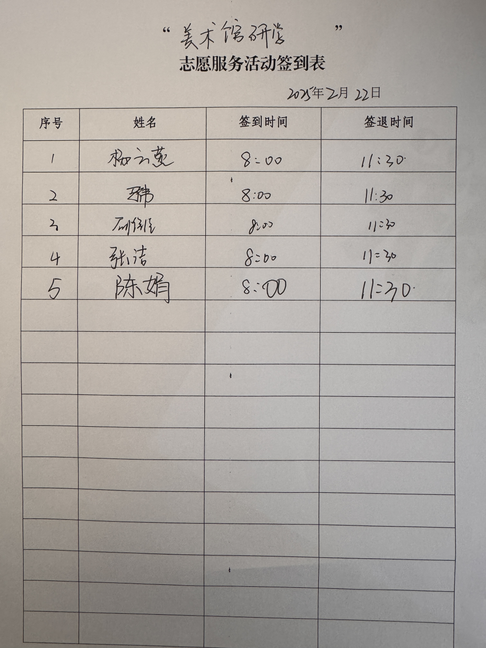 “美术馆研学”
志愿服务活动签到表
2025年2月22日
序号 姓名 签到时间 签退时间
1 杨云苑 8:00 11:30
2 8:00 11:30
3 8:00 11:30
4 张洁 8:00 11:30
5 陈娟 8:00 11:30